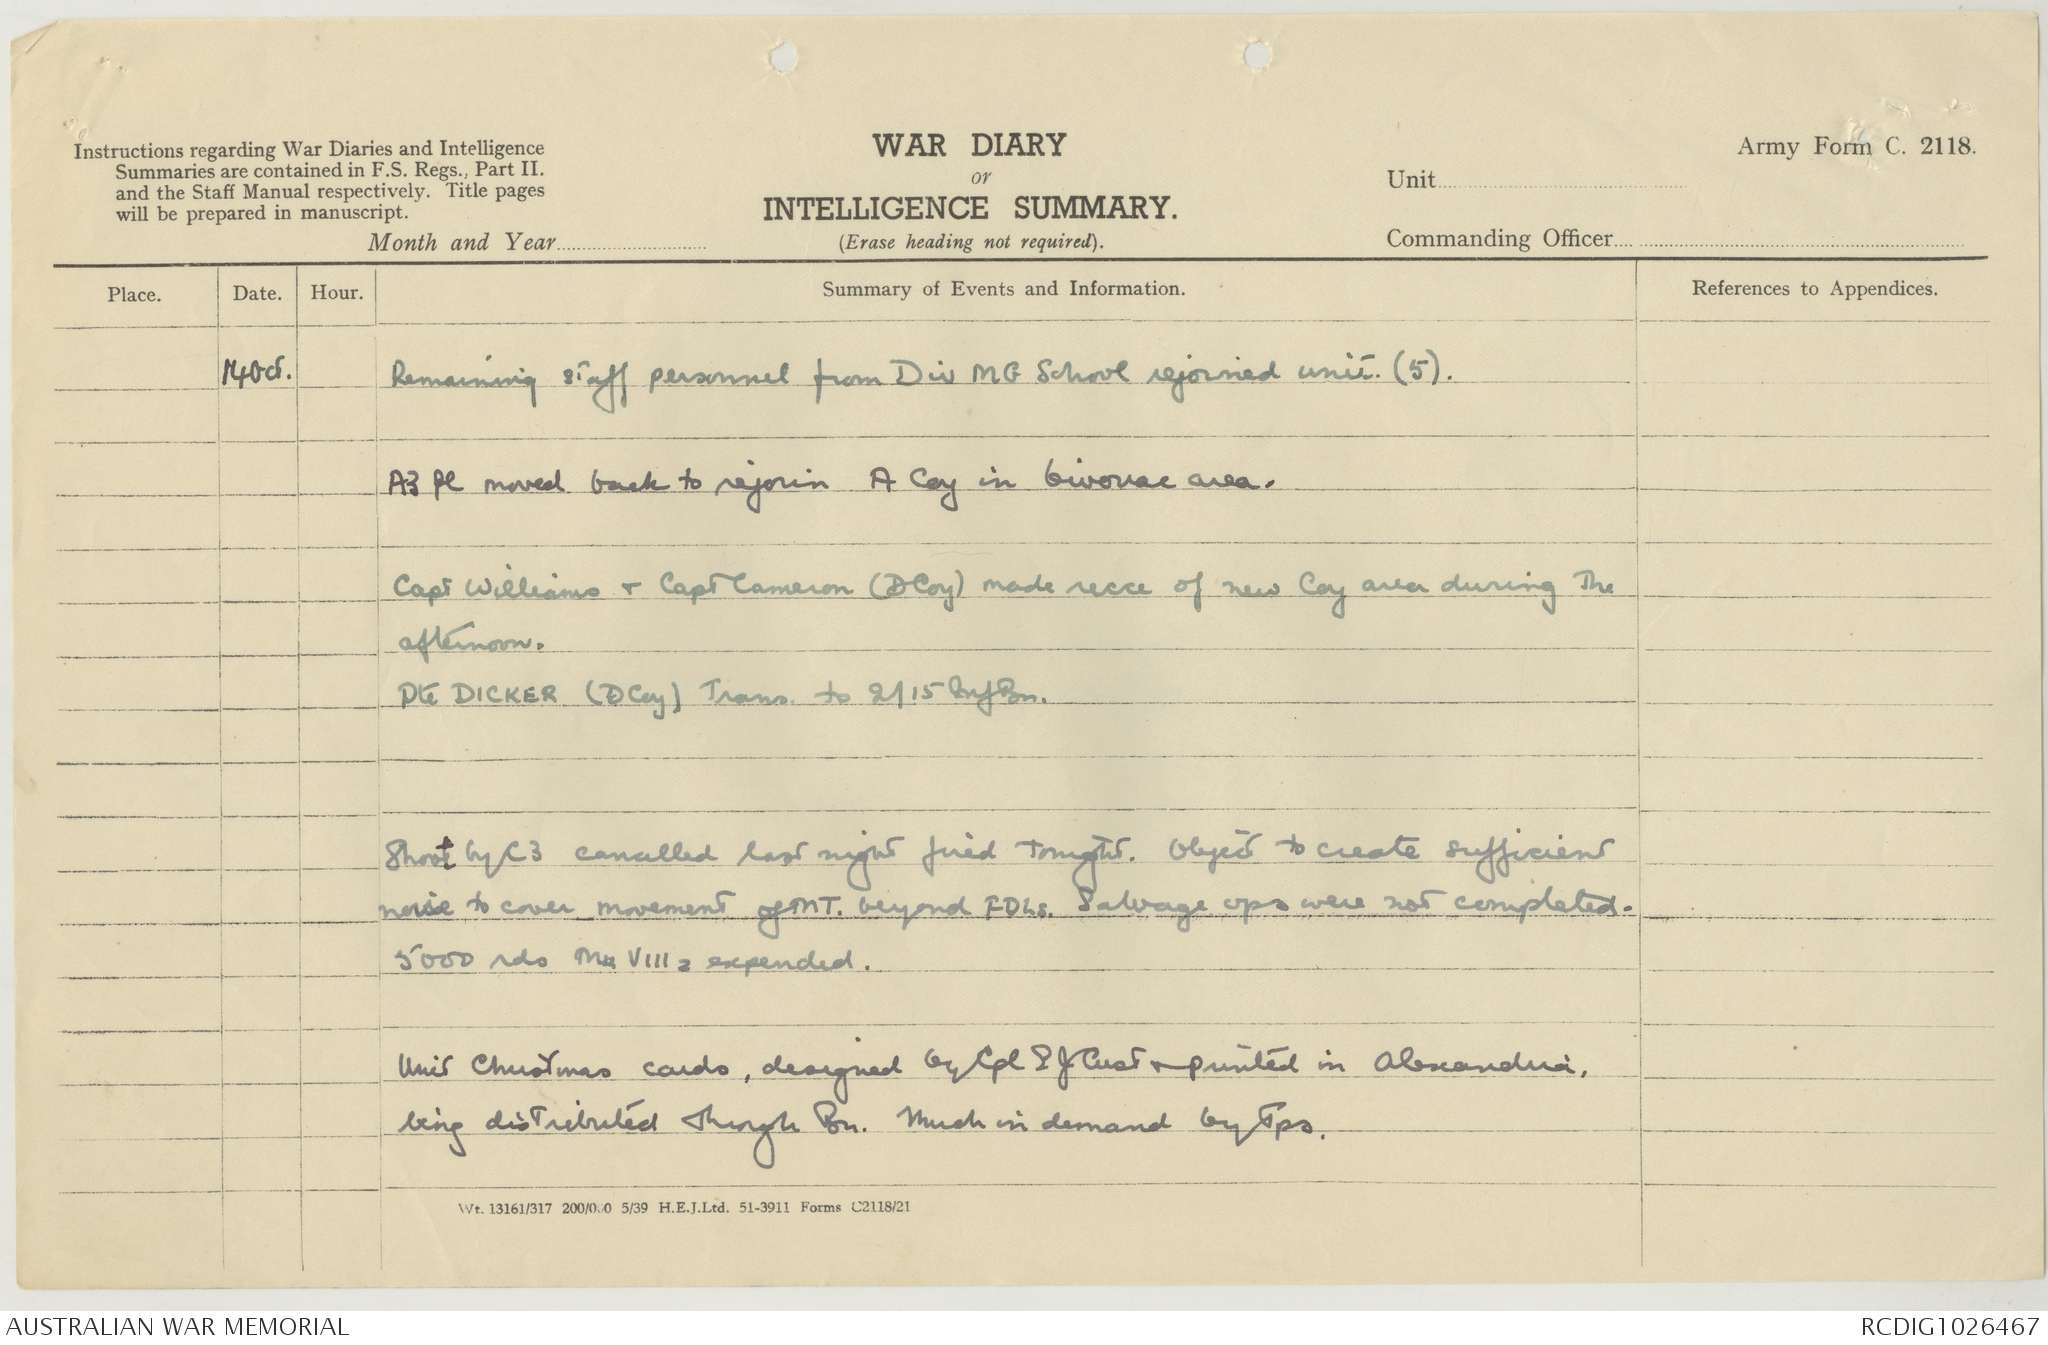 Instructions regarding War Diaries and Intelligence
Summaries are contained in F.S. Regs., Part II.
and the Staff Manual respectively. Title pages
will be prepared in manuscript.
Month and Year
WAR DIARY
or
INTELLIGENCE SUMMARY.
(Erase heading not required).
Army Form C. 2118.
Unit
Commanding Officer
Place. Date. Hour. Summary of Events and Information. References to Appendices.
14 Oct. Remaining staff personnel from Div MG School rejoined unit. (5).
A3 Pl moved back to rejoin A Coy in bivouac area.
Capt Williams + Capt Cameron (D Coy) made recce of new Coy area during the
afternoon.
Pte DICKER (D Coy) Trans. to 2/15 Inf Bn.
Shoot by C3 cancelled last night fired tonight. Object to create sufficient
noise to cover movement of MT. beyond FDLs. Salvage ops were not completed.
5000 rds Mk VIII z expended.
Unit Christmas cards, designed by Cpl Cust + printed in Alexandria,
being distributed through Bn. Much in demand by tps.
Wt. 13161/317 200/000 5/39 H.E.J.Ltd. 51-3911 Forms C2118/21
AUSTRALIAN WAR MEMORIAL
RCDIG1026467